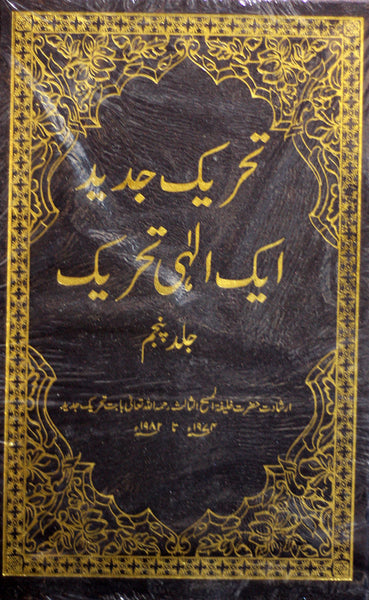 تحریک جدید
ایک الٰہی تحریک
جلد پنجم
ارشادات حضرت خلیفۃ المسیح الثالث رحمہ اللہ تعالیٰ بابت تحریک جدید
۱۹۷۴ء تا ۱۹۸۲ء